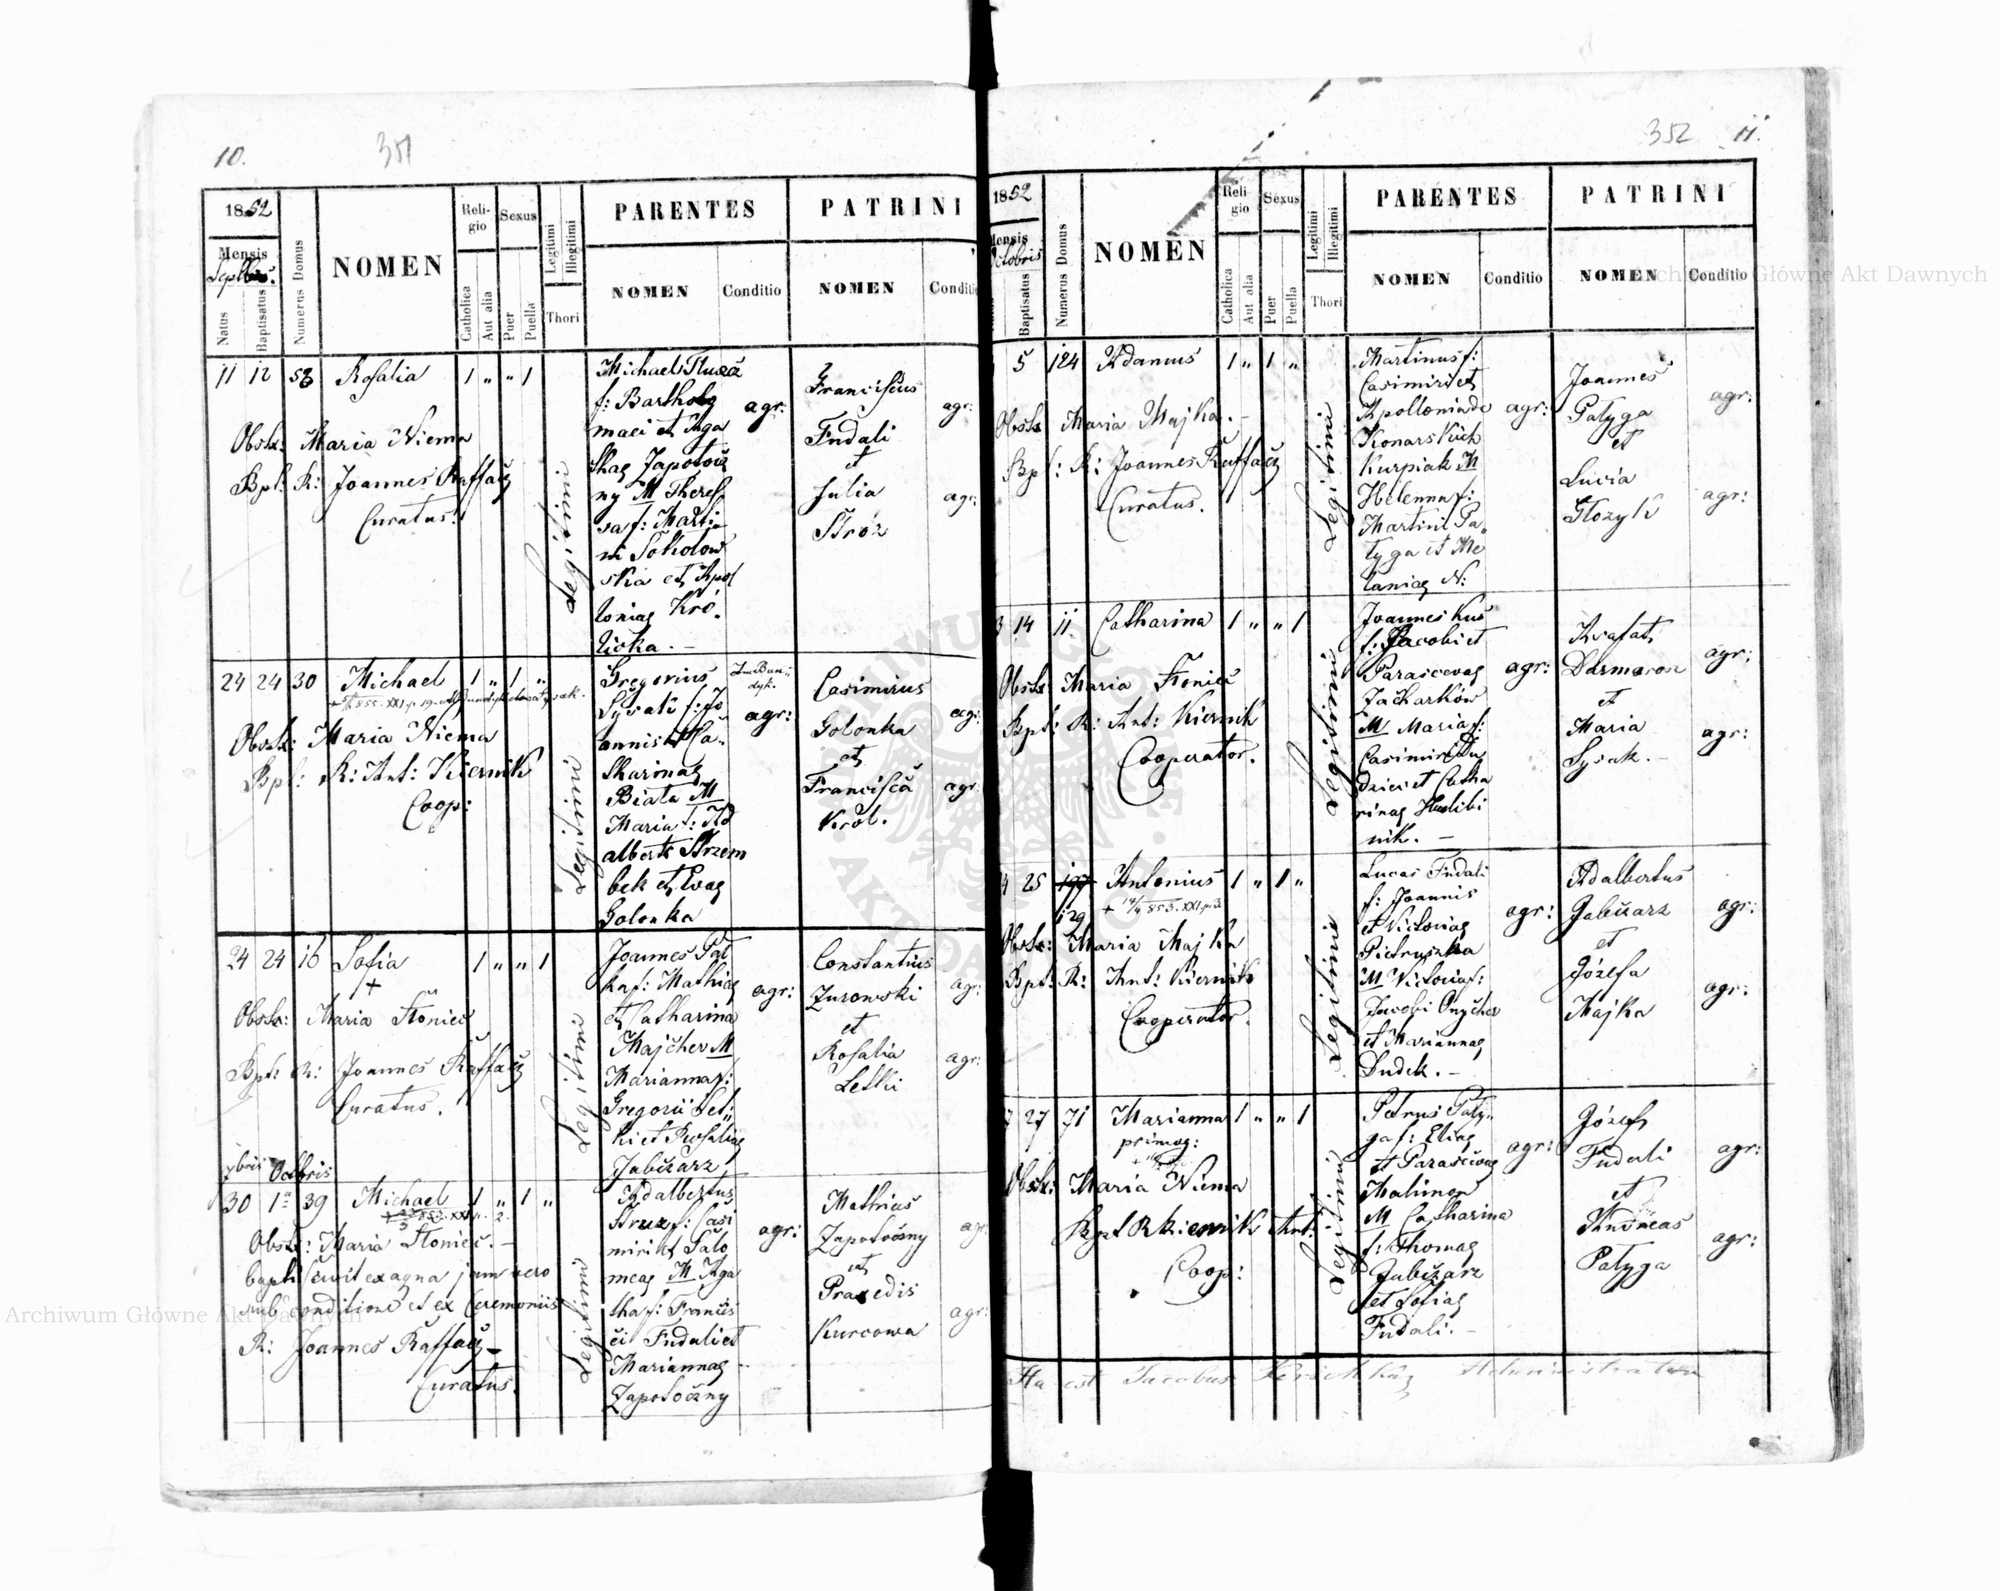 10.
351
1852
Mensis
Septbris.
Natus
Baptisatus
Numerus Domus
NOMEN
Religio
Catholica
Aut alia
Sexus
Puer
Puella
Legitimi
Illegitimi
Thori
PARENTES
NOMEN
Conditio
PATRINI
NOMEN
Conditio
11 12 58 Rosalia 1 " " 1
Obstx: Maria Niema
Bpt: R: Joannes Raffacz
Curatus.
Legitimi
Michael
f: Bartholo
maei et Aga
thae Zapotocz
ny M Theres
sa f: Marti
ni Sokolow
skia et Apol
loniae Kró.
licka. –
agr:
Franciscus
Fudali
et
Julia
Stróz
agr:
agr:
24 24 30 Michael 1 " 1 "
Obstx: Maria Niema
Bpt: R: Ant: Kiernik
Coop:
Legitimi
Gregorius
Sysak f: Jo
annis et Ca-
tharinae
Biata M
Maria f: Ad
alberti Strzem
bek et Evae
Golonka
agr:
Casimirus
Golonka
et
Francisca
Król.
agr:
agr:
24 24 16 Sofia 1 " " 1
+
Obstx: Maria Stoniec
Bpt: R: Joannes Raffacz
Curatus.
Legitimi
Joannes Pał
ka f: Mathiae
et Catharina
Majcher M
Marianna f:
Gregorii Let
ki et Rosaliae
Gabizarz
agr:
Constantius
Zurowski
et
Rosalia
Letki
agr:
agr:
7bris Octbris
30 1a 39 Michael 1 " 1 "
Obstx: Maria Stoniec. –
bapt: fuit ex aqua jam vero
sub conditione et ex Ceremoniis
R: Joannes Raffacz –
Curatus.
Legitimi
Adalbertus
Struz f: Casi
miri et Salo
meae M Aga
tha f: Francis
ci Fudali et
Mariannae –
Zapotoczny
agr:
Mathias
Zapotoczny
et
Praxedis
Kurcowa
agr:
agr:
352
11.
1852
Mensis
Octobris
Natus
Baptisatus
Numerus Domus
NOMEN
Religio
Catholica
Aut alia
Sexus
Puer
Puella
Legitimi
Illegitimi
Thori
PARENTES
NOMEN
Conditio
PATRINI
NOMEN
Conditio
5 124 Adamus 1 " 1 "
Obstx Maria Majka. –
Bpt: R: Joannes Raffacz
Curatus.
Legitimi
Martinus f:
Casimiri et
Apolloniade
Konarskich
Kurpiak M
Helenna f:
Martini Pa-
tyga et Me
laniae N:
agr:
Joannes
Patyga
et
Lucia
Stozyk
agr:
agr:
3 14 11 Catharina 1 " " 1
Obstx Maria Stoniec
Bpt: R: Ant: Kiernik
Cooperator.
Legitimi
Joannes Kus
f: Jacobi et
Parascevae
Zacharków
M Maria f:
Casimiri Du
dzici et Catha
rinae
nik. –
agr:
Darmoron
et
Maria
Sysak. –
agr:
agr:
4 25 197 Antonius 1 " 1 "
129
Obstx: Maria Majka
Bpt: R: Ant: Kiernik
Cooperator.
Legitimi
Lucas Fudali
f: Joannis
et Victoriae
Pietruszka
M Victoria f:
Jacobi Onycher
et Mariannae
Dudek. –
agr:
Adalbertus
Gabizarz
et
Józefa
Majka
agr:
agr:
7 27 71 Marianna 1 " " 1
primog:
Obstx: Maria Niema
Bpt R Kiernik Ant:
Coop:
Legitimi
Petrus Paty-
ga f: Eliae
et Parascevae
Malinow
M Catharina
f: Thomae
Gabizarz
et Sofiae
Fudali. –
agr:
Józef
Fudali
et
Andreas
Patyga
agr:
agr:
Ita est Jacobus Administrator
Archiwum Główne Akt Dawnych
Archiwum Główne Akt Dawnych
ARCHIWUM GŁÓWNE AKT DAWNYCH